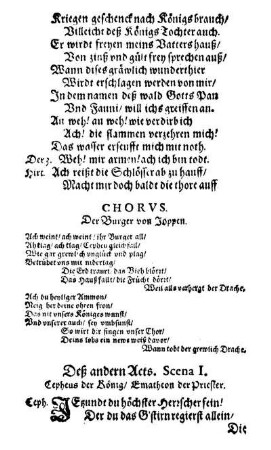 Kriegen geschenck nach Königs brauch/
Villeicht deß Königs Tochter auch.
Er wirdt freyen meins Vatters hauß/
Von zinß vnd gült frey sprechen auß/
Wann dises gräwlich wunderthier
Wirdt erschlagen werden von mir/
In dem namen deß wald Gotts Pan
Vnd Fauni/ will ichs greiffen an.
Au weh! au weh! wie verdirb ich
Ach! die flammen verzehren mich!
Das wasser erseufft mich mit noth.
Der 2. Weh! mir armen! ach ich bin todt.
Hirt. Ach reißt die Schlösser ab zu hauff/
Macht mir doch baldt die thore auff
CHORVS.
Der Burger von Joppen.
Ach weint/ ach weint/ ihr Burger all/
Ach klag/ Cepheu gleich fall/
Wie gar grewlich vnglück vnd plag/
Betrübet vns mit niderlag/
Die Erd trauret das Vieh
Das Hauß fallt/ die Frücht dörrt/
Weil alls verhergt der Drache.
Ach du heyliger Ammon/
Neig her deine ohren fron/
Das nit vnsers Königes
Vnd vnserer auch/ sey vmbsunst/
So wirt dir singen vnser Chor/
Deins lobs ein news weiß davor/
Wann todt der grewlich Drache.
Deß andern Acts. Scena I.
Cepheus der König/ Ematheon der Priester.
Ceph. Jetzundt du höchster Herrscher fein/
Der du das G'stirn regierst allein/
Die